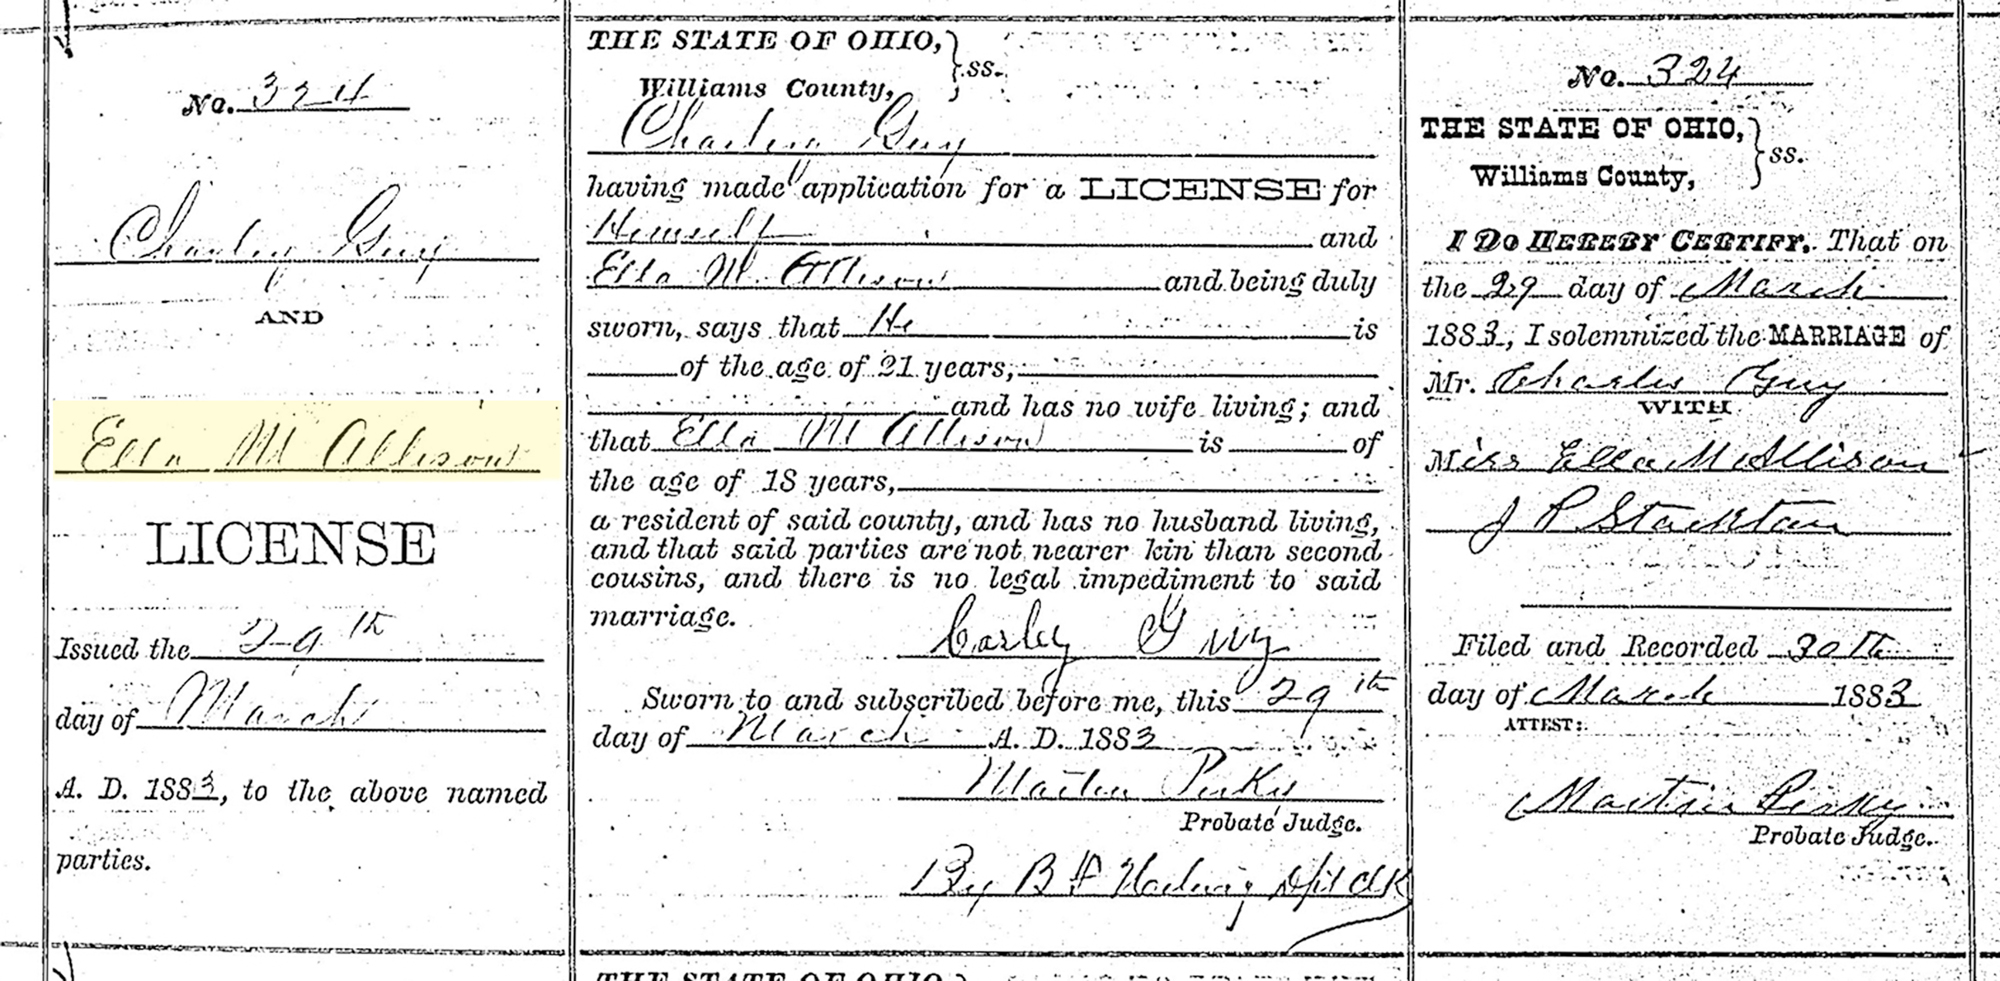 No. 324
Charley Guy
AND
Ella M Allison
LICENSE
Issued the 29th
day of March
A. D. 1883, to the above named
parties.
THE STATE OF OHIO, } ss.
Williams County,
Charley Guy
having made application for a LICENSE for
Himself and
Ella M. Allison and being duly
sworn, says that He is
of the age of 21 years,
and has no wife living; and
that Ella M Allison is of
the age of 18 years,
a resident of said county, and has no husband living,
and that said parties are not nearer kin than second
cousins, and there is no legal impediment to said
marriage.
Carley Guy
Sworn to and subscribed before me, this 29th
day of March A. D. 1883
Martin Perky
Probate Judge.
By B F
No. 324
THE STATE OF OHIO, } ss.
Williams County,
I DO HEREBY CERTIFY, That on
the 29 day of March
1883, I solemnized the MARRIAGE of
Mr. Charles Guy
WITH
Miss Ella M Allison
J P Stockton
Filed and Recorded 30th
day of March 1883
ATTEST:
Martin Perky
Probate Judge.
THE STATE OF OHIO,